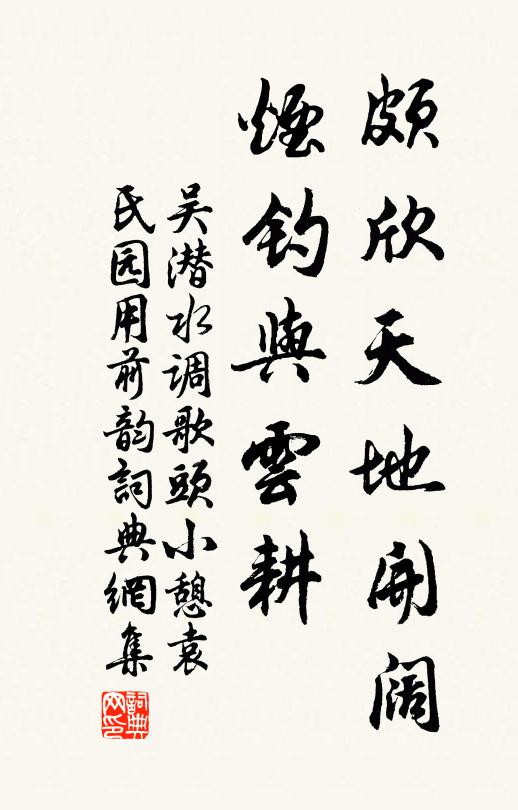 颇欣天地開阔
煙钓與雲耕
吴潜水调歌頭小憩袁
氏园用前韵詞典網集
詞典網印